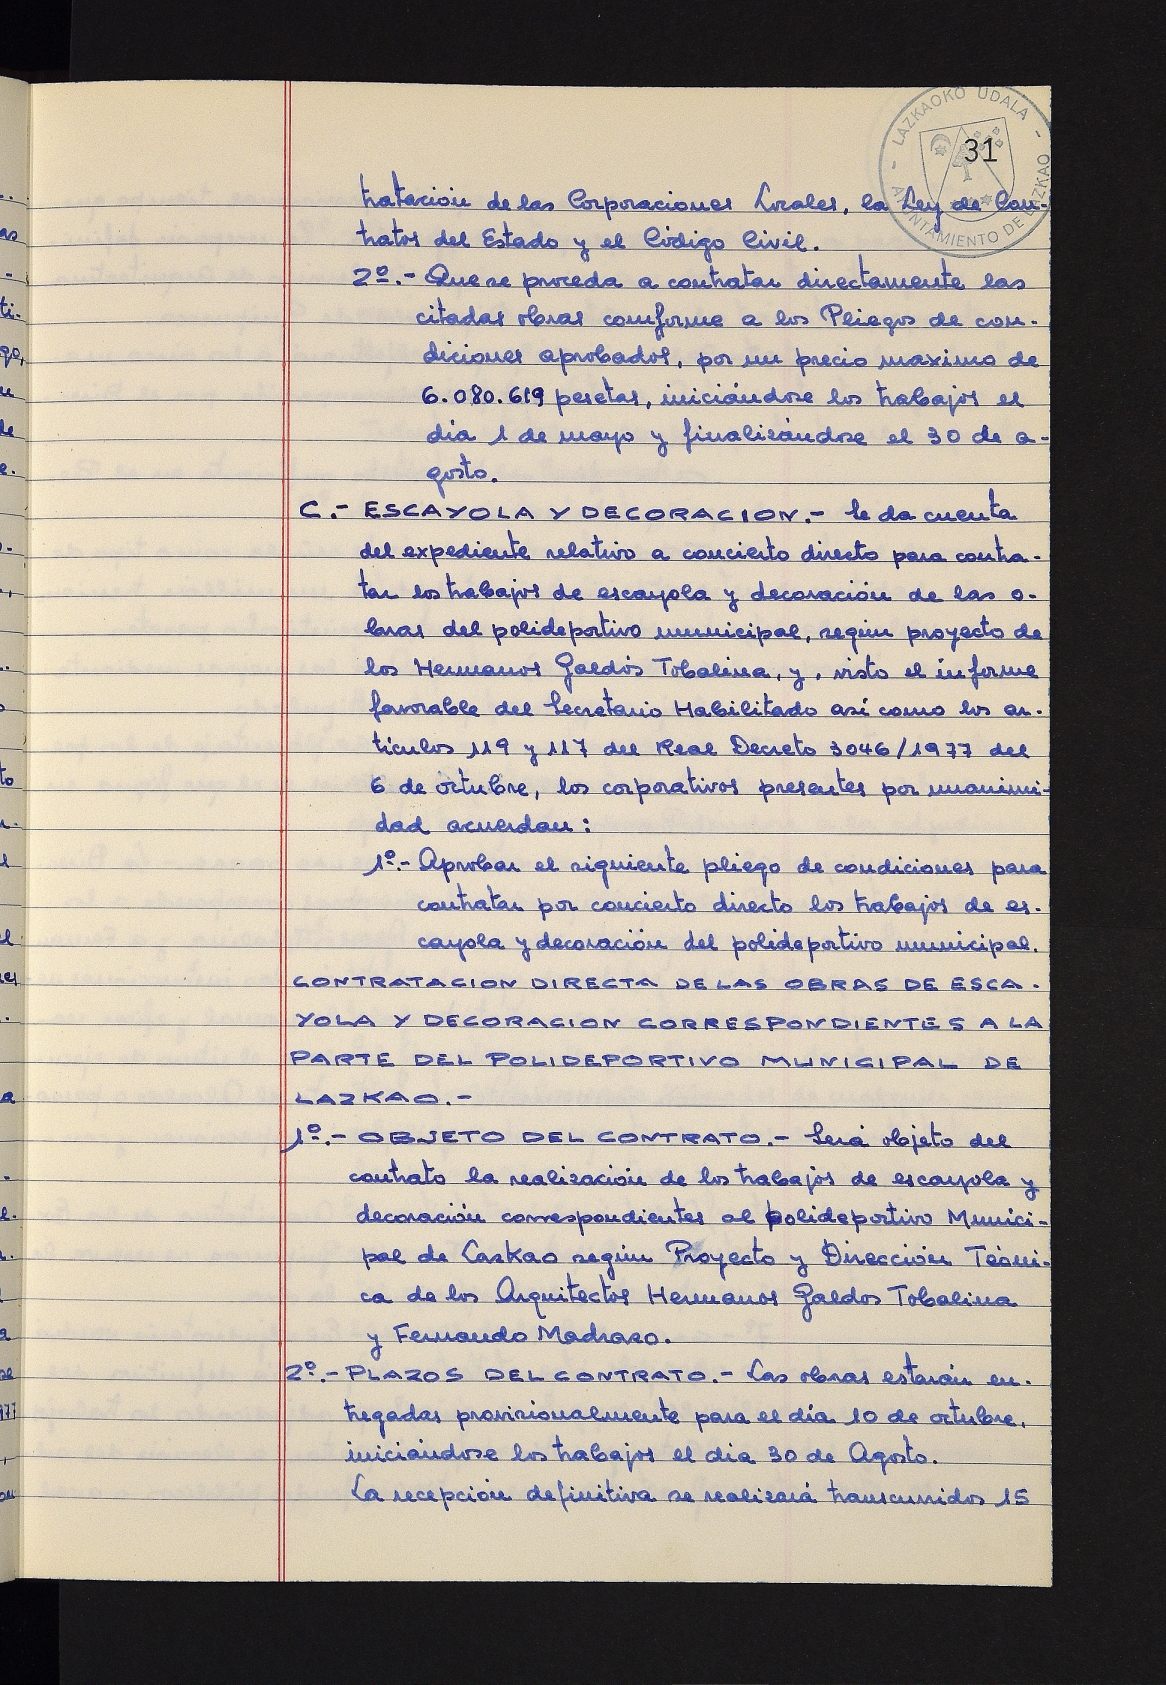 LAZKAOKO UDALA - AYUNTAMIENTO DE LAZKAO -
31
tratación de las Corporaciones Locales, la Ley de Con-
tratos del Estado y el Código Civil.
2º.- Que se proceda a contratar directamente las
citadas obras comforme a los Pliegos de con-
diciones aprobados, por un precio maximo de
6.080.619 pesetas, iniciándose los trabajos el
dia 1 de mayo y finalizándose el 30 de a-
gosto.
C.- ESCAYOLA Y DECORACION.- Se da cuenta
del expediente relativo a concierto directo para contra-
tar los trabajos de escayola y decoración de las o-
bras del polideportivo municipal, según proyecto de
los Hermanos Galdós Tobalina, y, visto el informe
favorable del Secretario Habilitado así como los ar-
tículos 119 y 117 del Real Decreto 3046/1977 del
6 de octubre, los corporativos presentes por unanimi-
dad acuerdan:
1º.- Aprobar el siguiente pliego de condiciones para
contratar por concierto directo los trabajos de es-
cayola y decoración del polideportivo municipal.
CONTRATACION DIRECTA DE LAS OBRAS DE ESCA-
YOLA Y DECORACION CORRESPONDIENTES A LA
PARTE DEL POLIDEPORTIVO MUNICIPAL DE
LAZKAO.-
1º.- OBJETO DEL CONTRATO.- Será objeto del
contrato la realización de los trabajos de escayola y
decoración correspondientes al polideportivo Munici-
pal de Lazkao según Proyecto y Dirección Técni-
ca de los Arquitectos Hermanos Galdos Tobalina
y Fernando Madrazo.
2º.- PLAZOS DEL CONTRATO.- Las obras estarán en-
tregadas provisionalmente para el día 10 de octubre,
iniciándose los trabajos el dia 30 de Agosto.
La recepción definitiva se realizará transcurridos 15